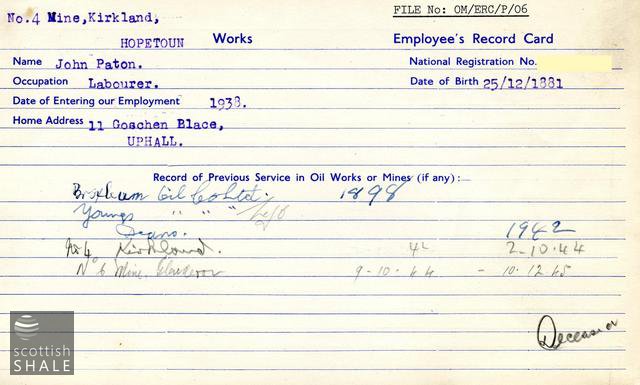 No.4 Mine,Kirkland,
FILE No: OM/ERC/P/06
HOPETOUN Works Employee's Record Card
Name John Paton. National Registration No.
Occupation Labourer. Date of Birth 25/12/1881
Date of Entering our Employment 1938.
Home Address 11 Goschen Blace,
UPHALL.
Record of Previous Service in Oil Works or Mines (if any):—
Broxburn Oil Co Ltd. 1898
Youngs " " "
Deans. 1942
No 4 Kirkland. 42 2-10-44
No 6 Mine. 9-10-44 - 10.12.45
Deceased
scottish
SHALE